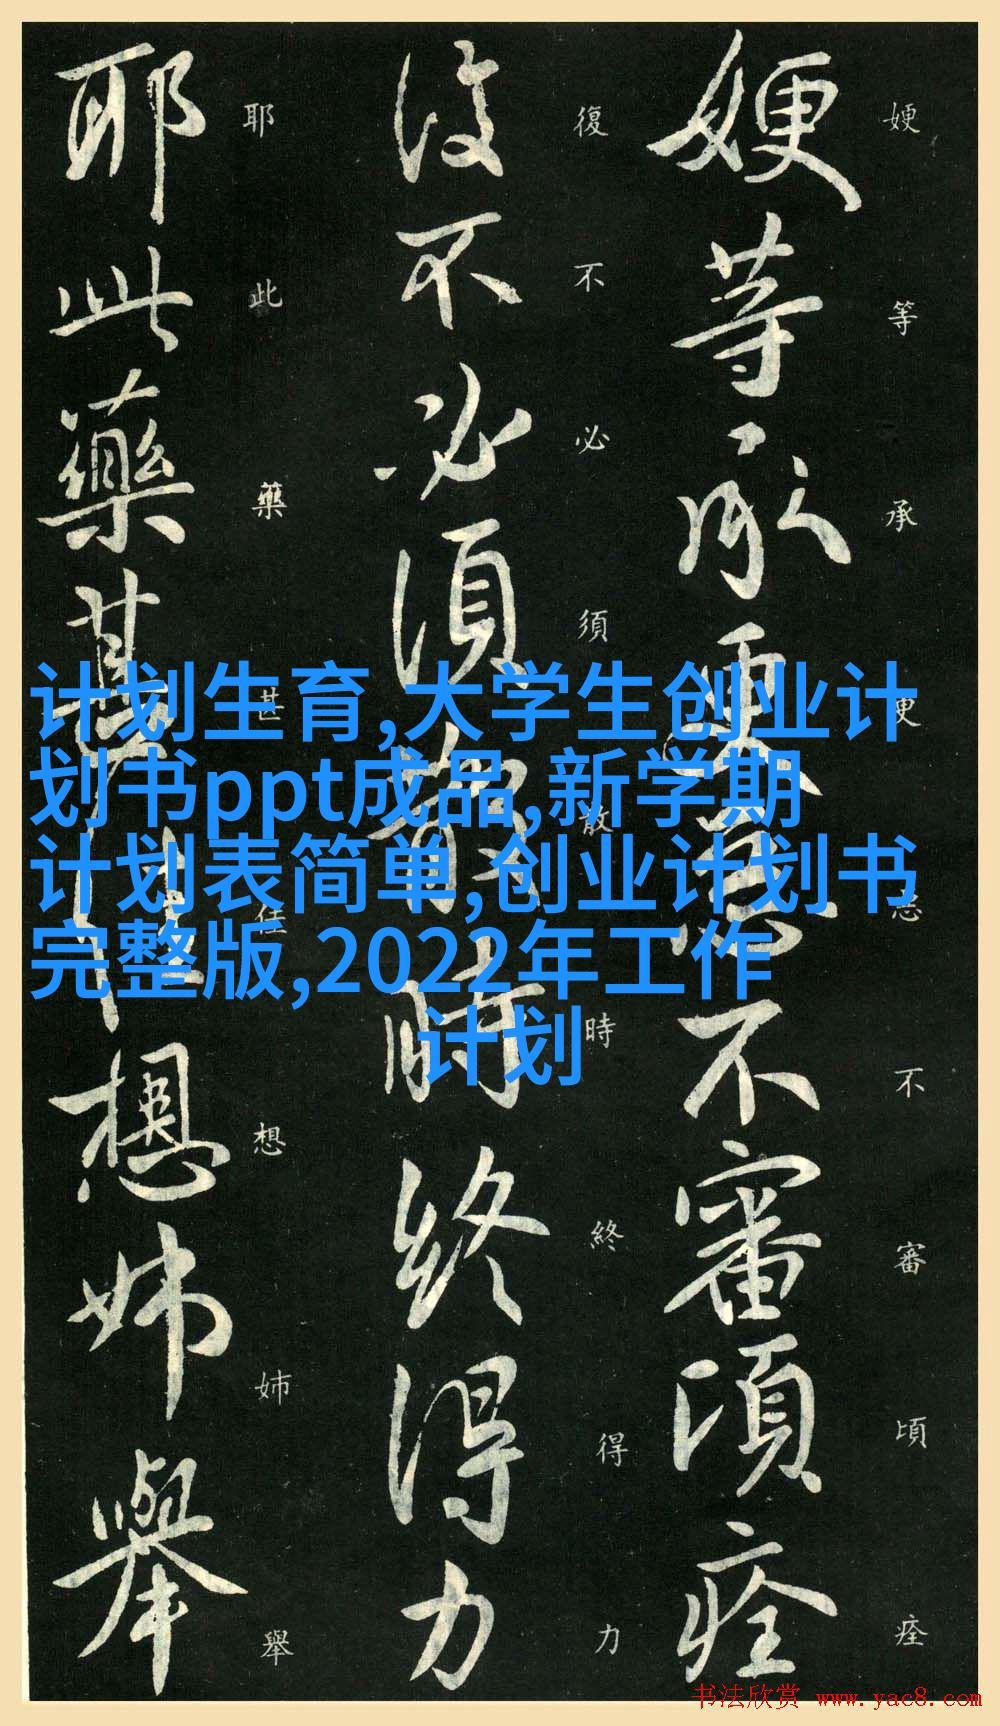 㛐等承更惡不審頃痊
㛐等承更惡不審頃痊
復不必須散時終得力
復不必須散時終得力
耶此藥甚佳想姊舉
耶此藥甚佳想姊舉
计划生育,大学生创业计
划书ppt成品,新学期
计划表简单,创业计划书
完整版,2022年工作
计划
书法欣赏 www.yac8.com